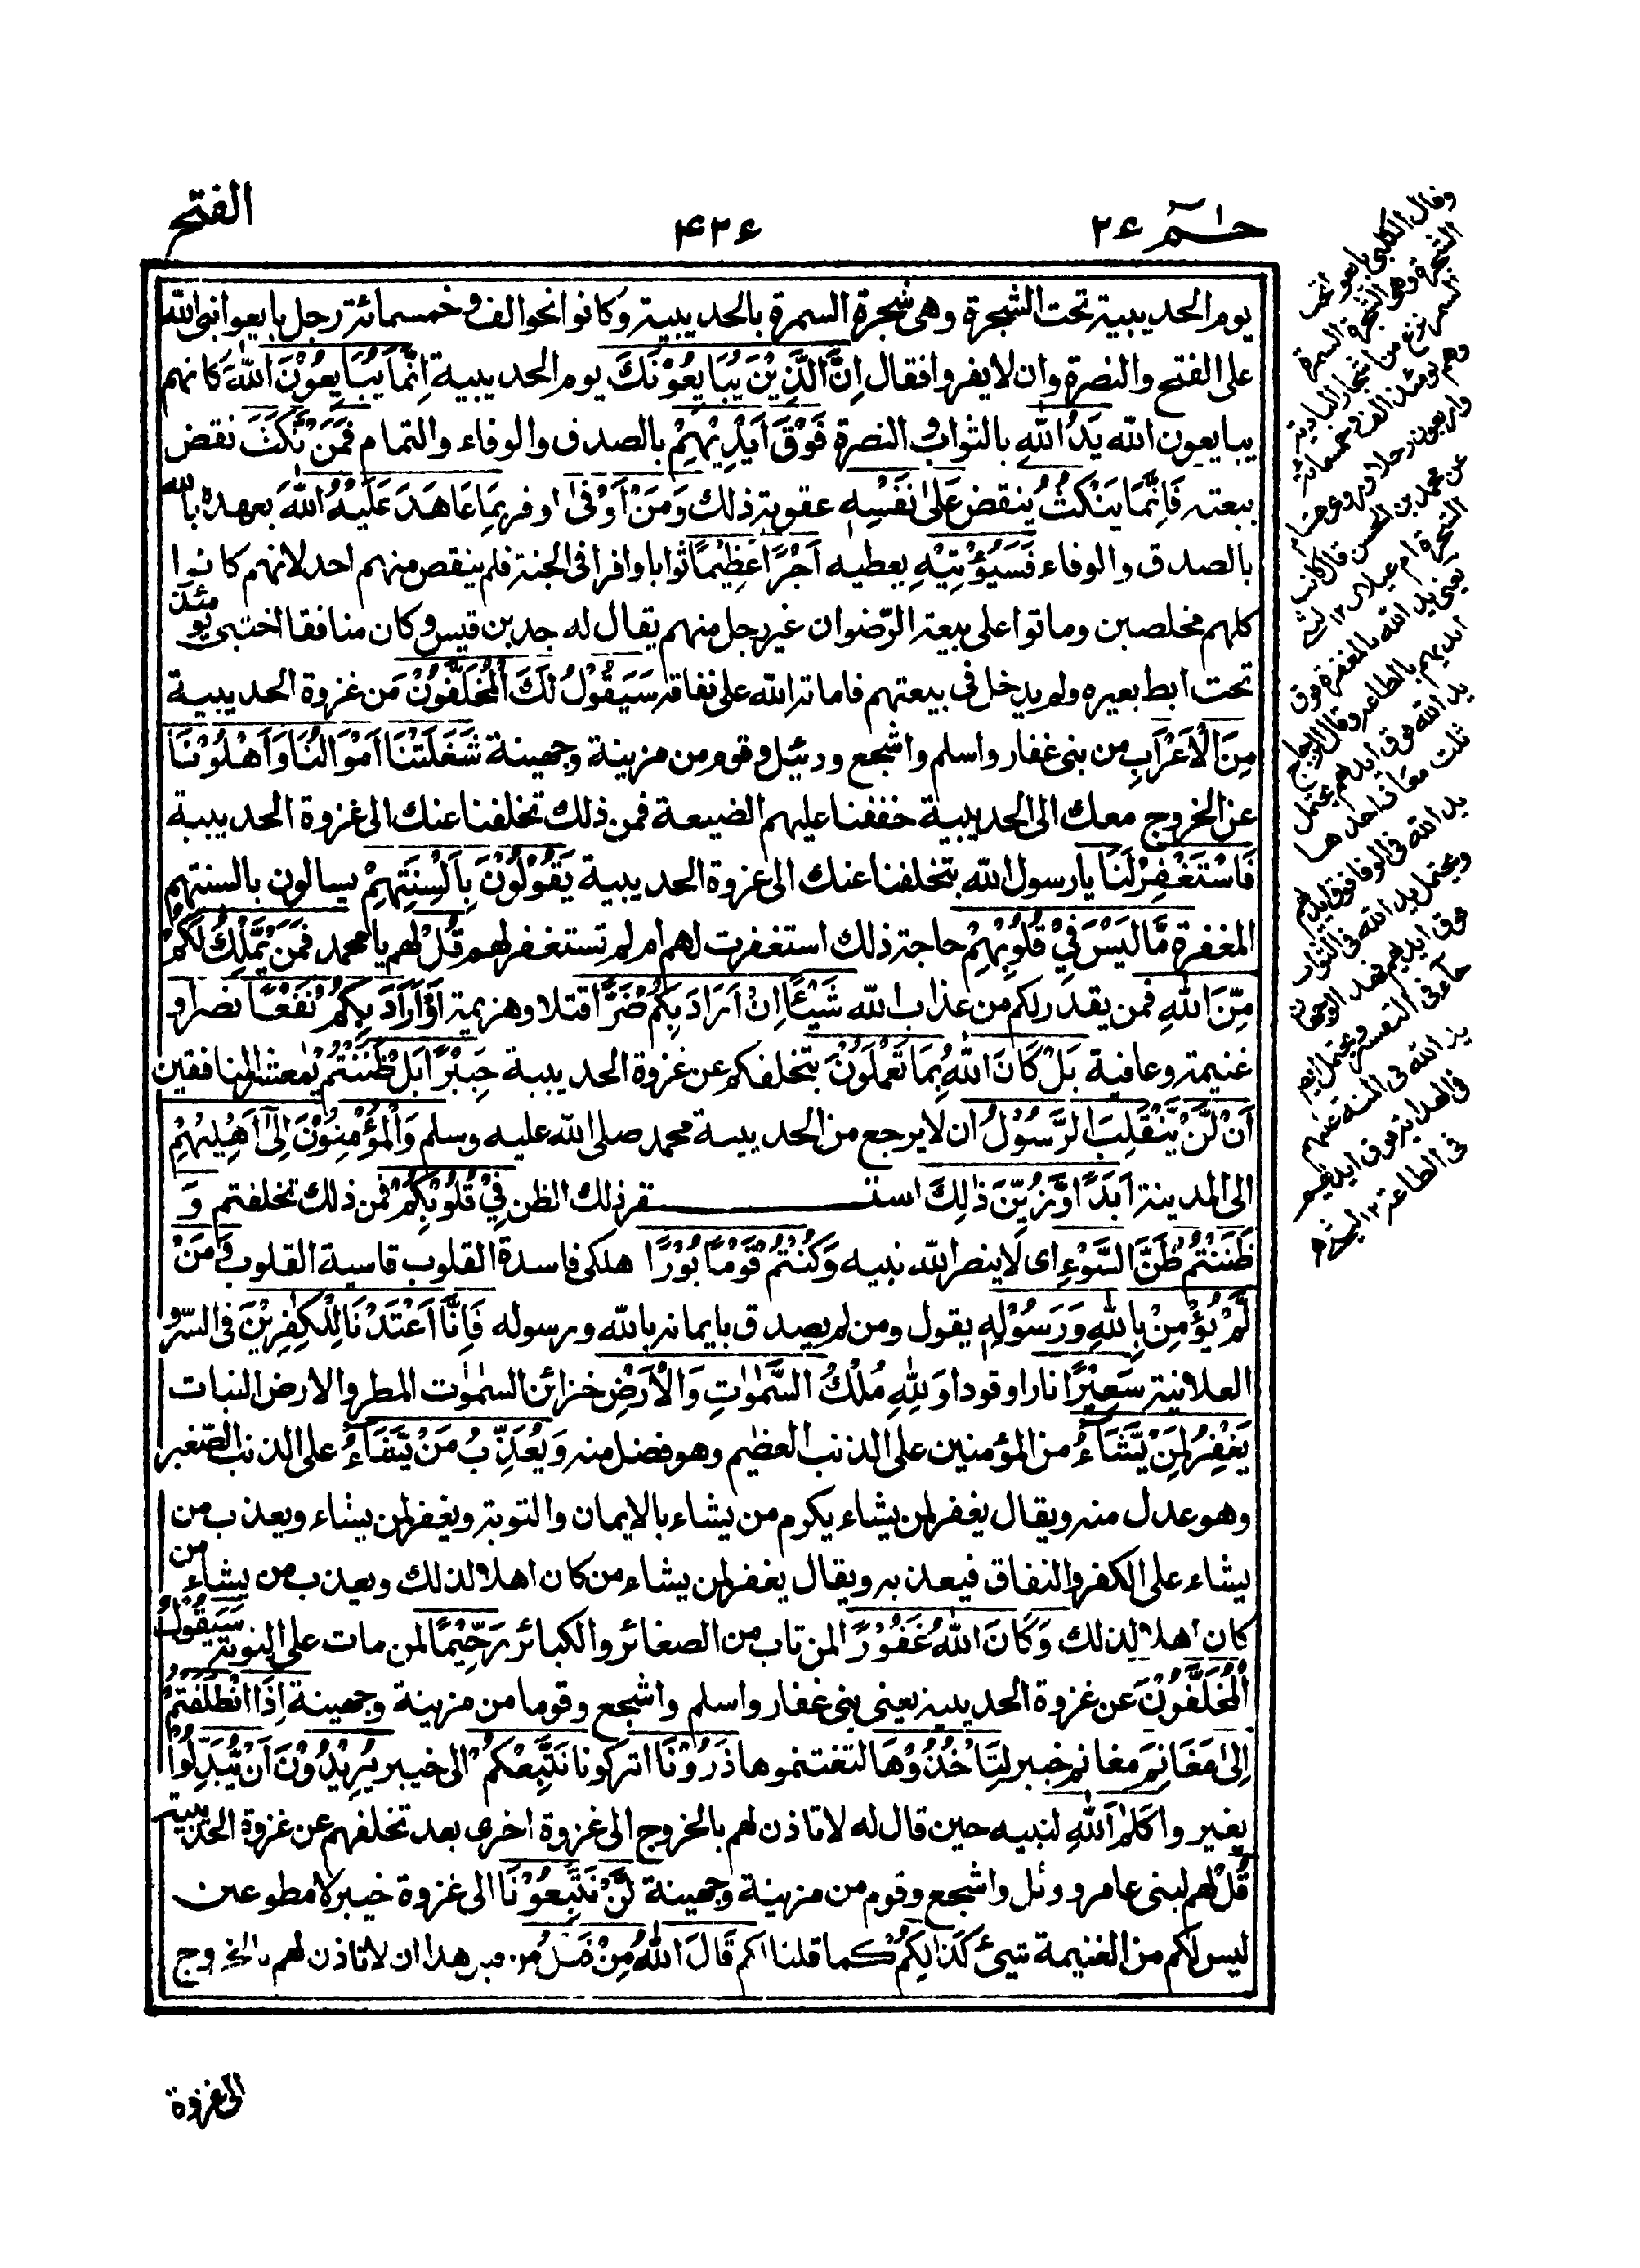 حٰمٓ ٢٦
٤٢٦
الفتح
يوم الحديبية تحت الشجرة وهى شجرة السمرة بالحديبية وكانوا نحو الف وخمسمائة رجل بايعوا نبى الله
على الفتح والنصرة وان لا يفروا فقال اِنَّ الَّذِيْنَ يُبَايِعُوْنَكَ يوم الحديبية اِنَّمَا يُبَايِعُوْنَ اللّٰهَ كانهم
يبايعون الله يَدُ اللّٰهِ بالثواب و النصرة فَوْقَ اَيْدِيْهِمْ بالصدق والوفاء والتمام فَمَنْ نَّكَثَ نقض
بيعته فَاِنَّمَا يَنْكُثُ ينقض عَلٰى نَفْسِهٖ عقوبة ذلك وَمَنْ اَوْفٰى اوفر بِمَا عَاهَدَ عَلَيْهُ اللّٰهَ بعهده بالله
بالصدق والوفاء فَسَيُؤْتِيْهِ يعطيه اَجْرًا عَظِيْمًا ثوابا وافرا فى الجنة فلم ينقص منهم احد لانهم كانوا
كلهم مخلصين وماتوا على بيعة الرّضوان غير رجل منهم يقال له جد بن قيس وكان منافقا اختبى يومئذ
تحت ابط بعيره ولم يدخل فى بيعتهم فاماته الله على نفاقه سَيَقُوْلُ لَكَ الْمُخَلَّفُوْنَ من غزوة الحديبية
مِنَ الْاَعْرَابِ من بنى غفار واسلم واشجع ودئيل وقوم من مزينة وجهينة شَغَلَتْنَا اَمْوَالُنَا وَاَهْلُوْنَا
عن الخروج معك الى الحديبية خفنا عليهم الضيعة فمن ذلك تخلفنا عنك الى غزوة الحديبية
فَاسْتَغْفِرْ لَنَا يا رسول الله بتخلفنا عنك الى غزوة الحديبية يَقُوْلُوْنَ بِاَلْسِنَتِهِمْ يسالون بالسنتهم
المغفرة مَّا لَيْسَ فِيْ قُلُوْبِهِمْ حاجة ذلك استغفرت لهم ام لم تستغفر لهم قُلْ لهم يا محمد فَمَنْ يَّمْلِكُ لَكُمْ
مِّنَ اللّٰهِ فمن يقدر لكم من عذاب الله شَيْئًا اِنْ اَرَادَ بِكُمْ ضَرًّا قتلا وهزيمة اَوْ اَرَادَ بِكُمْ نَفْعًا نصرا و
غنيمة وعافية بَلْ كَانَ اللّٰهُ بِمَا تَعْمَلُوْنَ بتخلفكم عن غزوة الحديبية خَبِيْرًا بَلْ ظَنَنْتُمْ يٰمعشر المنافقين
اَنْ لَّنْ يَّنْقَلِبَ الرَّسُوْلُ ان لا يرجع من الحديبية محمد صلى الله عليه وسلم وَالْمُؤْمِنُوْنَ اِلٰٓى اَهْلِيْهِمْ
الى المدينة اَبَدًا وَّزُيِّنَ ذٰلِكَ استقر ذلك الظن فِيْ قُلُوْبِكُمْ فمن ذلك تخلفتم وَ
ظَنَنْتُمْ ظَنَّ السَّوْءِ اى لا ينصر الله نبيه وَكُنْتُمْ قَوْمًا بُوْرًا هلكى فاسدة القلوب قاسية القلوب وَمَنْ
لَّمْ يُؤْمِنْ بِاللّٰهِ وَرَسُوْلِهٖ يقول ومن لم يصدق بايمانه بالله ورسوله فَاِنَّا اَعْتَدْنَا لِلْكٰفِرِيْنَ فى السّر و
العلانية سَعِيْرًا نارا وقودا وَلِلّٰهِ مُلْكُ السَّمٰوٰتِ وَالْاَرْضِ خزائن السمٰوٰت المطر والارض النبات
يَغْفِرُ لِمَنْ يَّشَآءُ من المؤمنين على الذنب العظيم وهو فضل منه وَيُعَذِّبُ مَنْ يَّشَآءُ على الذنب الصّغير
وهو عدل منه ويقال يغفر لمن يشاء يكرم من يشاء بالايمان والتوبة ويغفر لمن يشاء ويعذب من
يشاء على الكفر والنفاق فيعذبه ويقال يغفر لمن يشاء من كان اهلا لذلك ويعذب من يشاء من
كان اهلا لذلك وَكَانَ اللّٰهُ غَفُوْرًا لمن تاب من الصغائر والكبائر رَّحِيْمًا لمن مات على التوبة سَيَقُوْلُ
الْمُخَلَّفُوْنَ عن غزوة الحديبية يعنى بنى غفار واسلم واشجع وقوما من مزينة وجهينة اِذَا انْطَلَقْتُمْ
اِلٰى مَغَانِمَ مغانم خيبر لِتَاْخُذُوْهَا لتغتنموها ذَرُوْنَا اتركونا نَتَّبِعْكُمْ الى خيبر يُرِيْدُوْنَ اَنْ يُّبَدِّلُوْا
يغيروا كَلٰمَ اللّٰهِ لنبيه حين قال له لا تاذن لهم بالخروج الى غزوة اخرى بعد تخلفهم عن غزوة الحديبية
قُلْ لهم لبنى عامر ودئل واشجع وقوم من مزينة وجهينة لَّنْ تَتَّبِعُوْنَا الى غزوة خيبر الا مطوعين
ليس لكم من الغنيمة شيئ كَذٰلِكُمْ كما قلنا لكم قَالَ اللّٰهُ مِنْ قَبْلُ من قبل هذا ان لا تاذن لهم بالخروج
الى غزوة
وقال الكلبى بايعوا تحت
الشجرة وهو الشجرة السمرة
السمر نوع من اشجار البادية
وهم يومئذ الف و خمسمائة
واربعون رجلا وروى هشام
عن محمد بن الحسن قال كانت
الشجرة ام غيلان ١٢
يعنى يد الله بالمغفرة فوق
ايديهم بالطاعة وقال الزجاج
يد الله فوق ايديهم يحتمل
ثلث معان احدها
يد الله فى الوفا فوق ايديهم
ويحتمل يد الله فى الثواب
فوق ايديهم فهذان الوجهان
جاء فى التفسير ويحتمل ايضا
يد الله فى المنة عليهم
فى الهداية فوق ايديهم
فى الطاعة ١٢